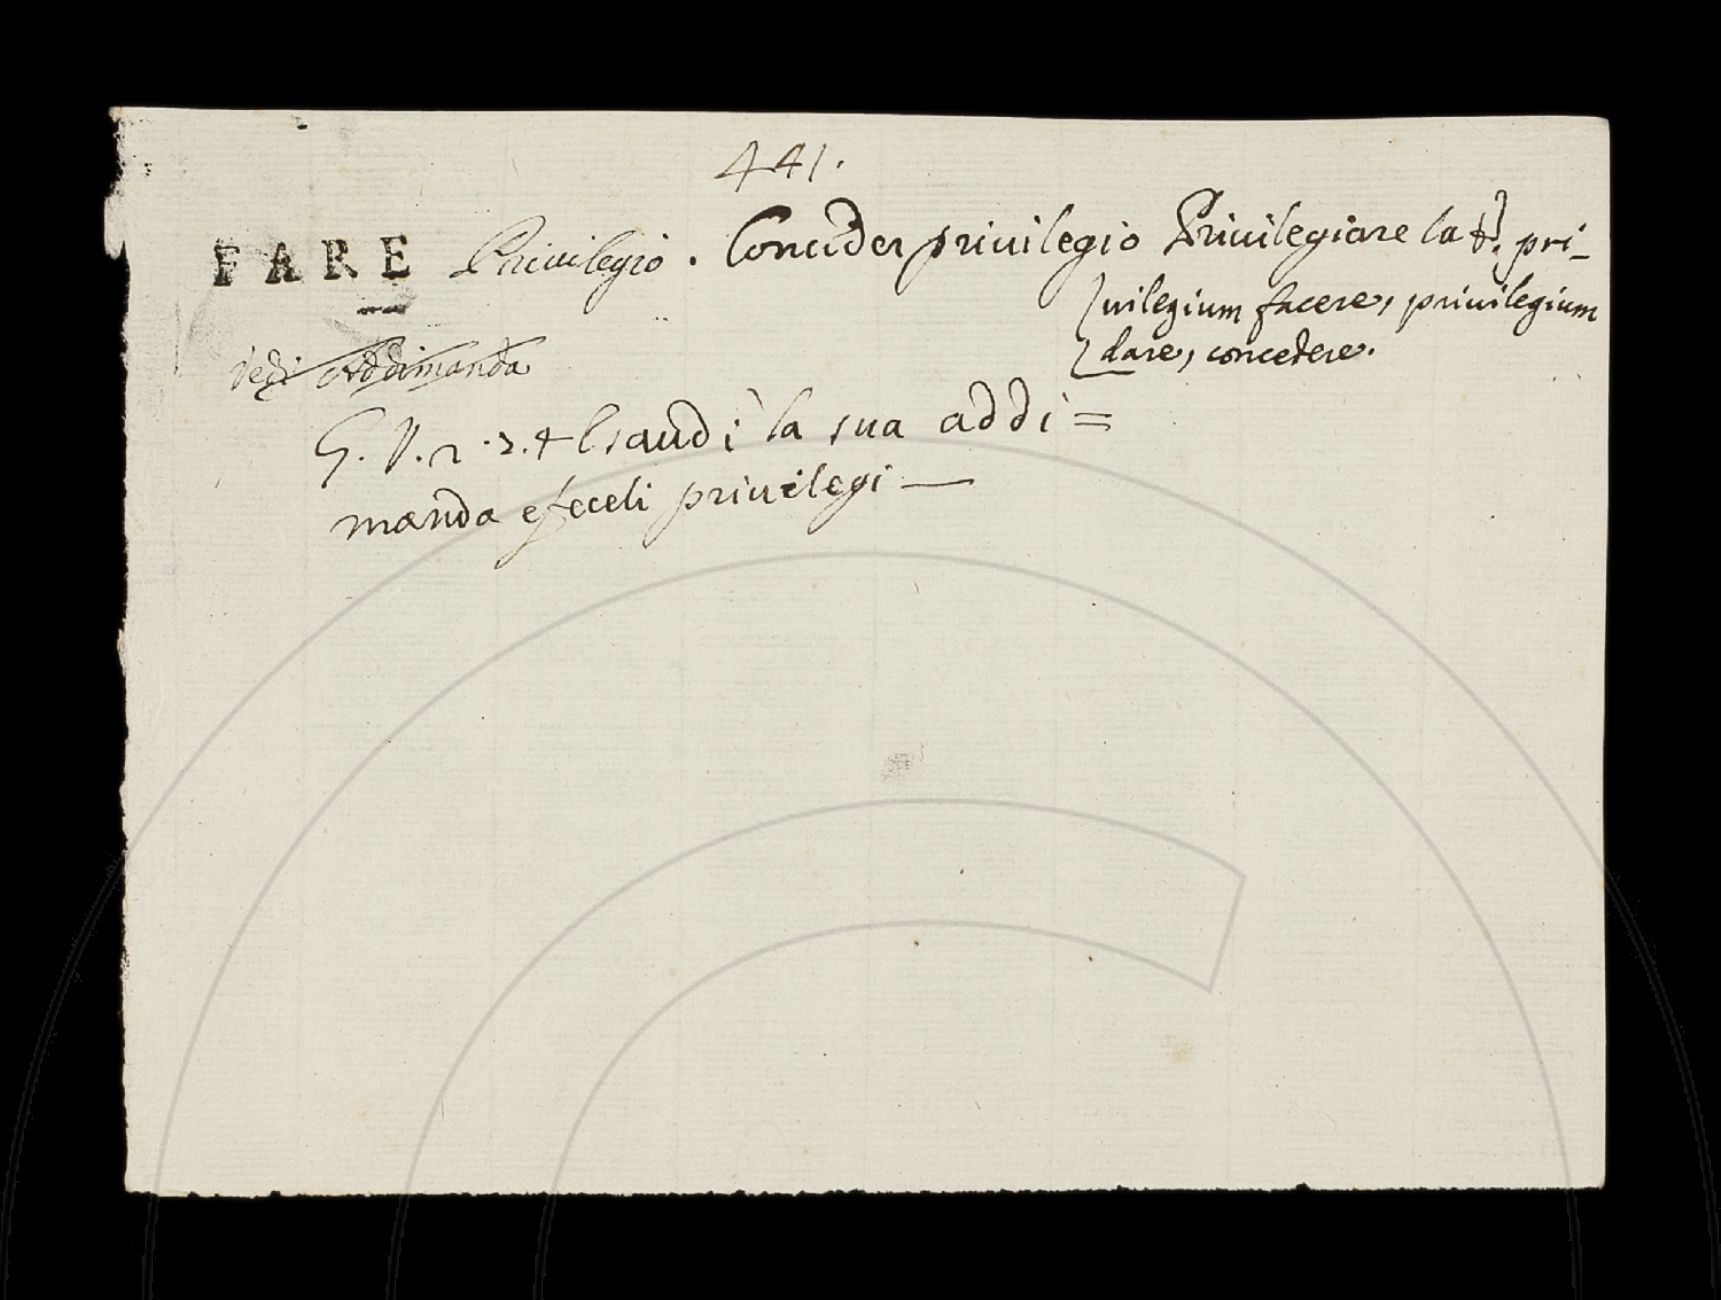 441.
FARE Privilegio. Conceder privilegio Privilegiare lat. pri-
vilegium facere, privilegium
dare, concedere.
Vedi Addimanda
G. V. 2. 2. 4 Esaudì la sua addi=
manda e feceli privilegi —